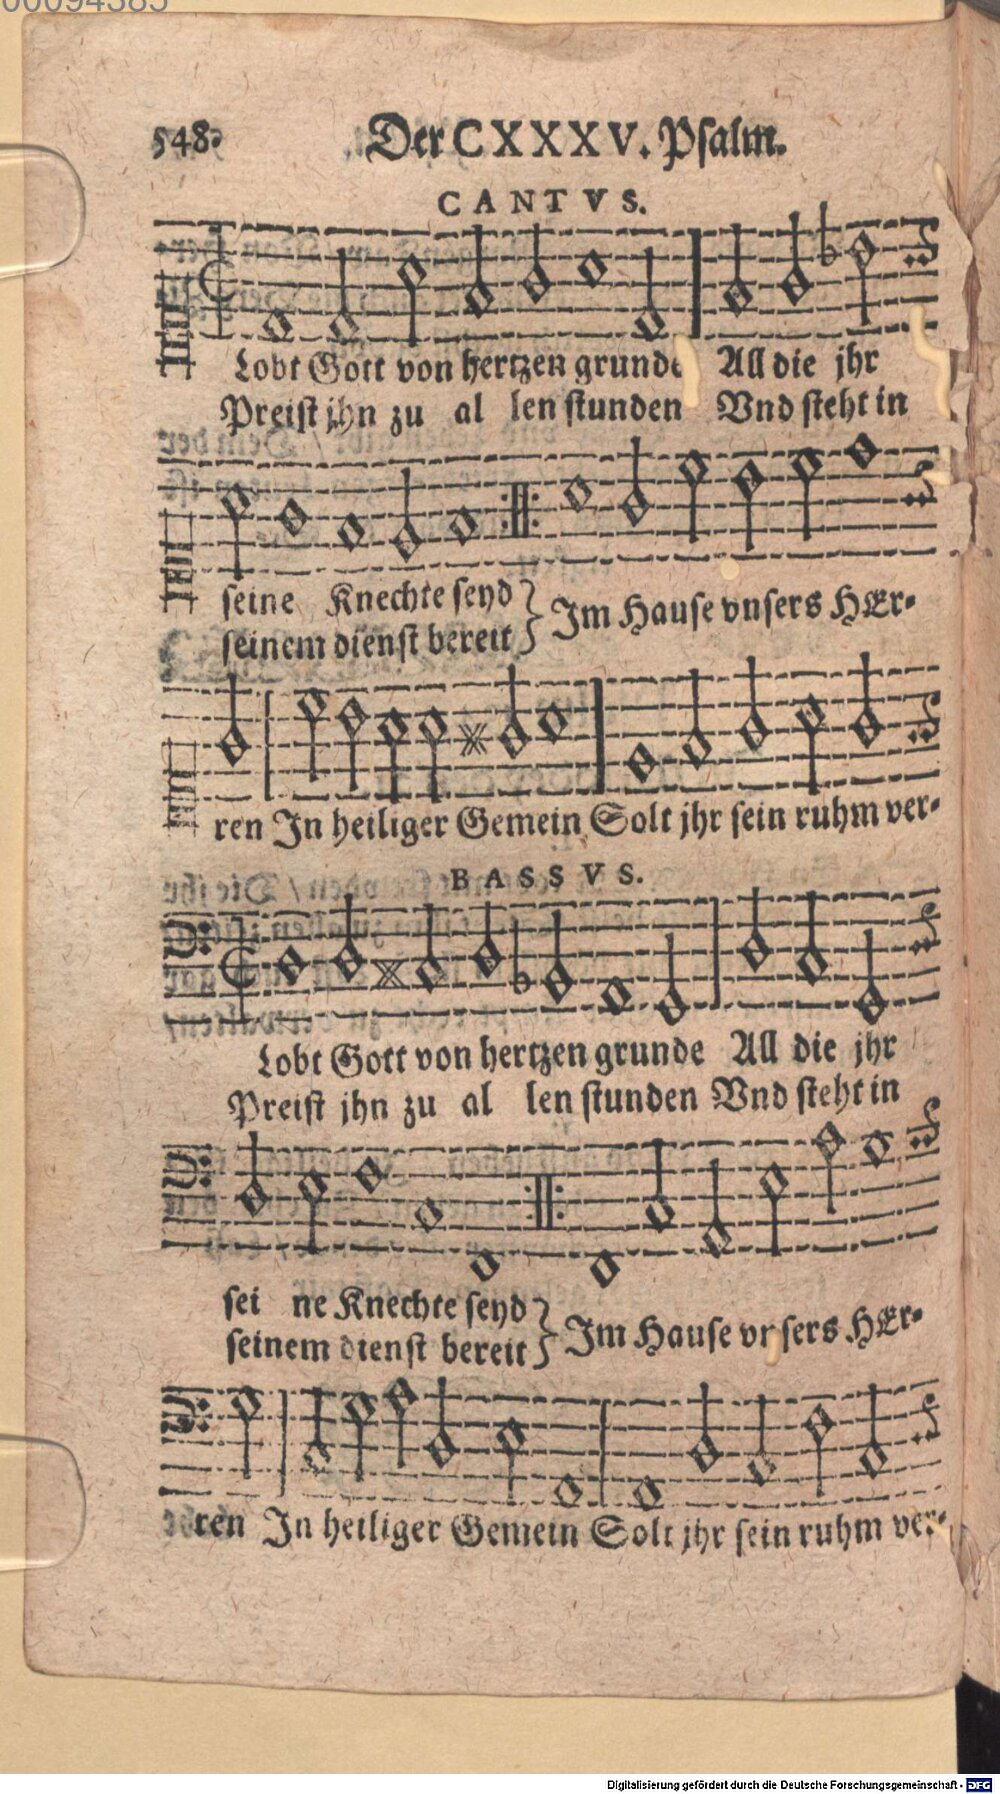 00094385
548.
Der CXXXV. Psalm.
CANTVS.
Lobt Gott von hertzen grunde All die jhr
Preist jhn zu al len stunden Vnd steht in
seine Knechte seyd } Im Hause vnsers HEr-
seinem dienst bereit
ren In heiliger Gemein Solt jhr sein ruhm ver-
BASSVS.
Lobt Gott von hertzen grunde All die jhr
Preist jhn zu al len stunden Vnd steht in
sei ne Knechte seyd } Im Hause vnsers HEr-
seinem dienst bereit
ren In heiliger Gemein Solt jhr sein ruhm ver-
Digitalisierung gefördert durch die Deutsche Forschungsgemeinschaft - DFG